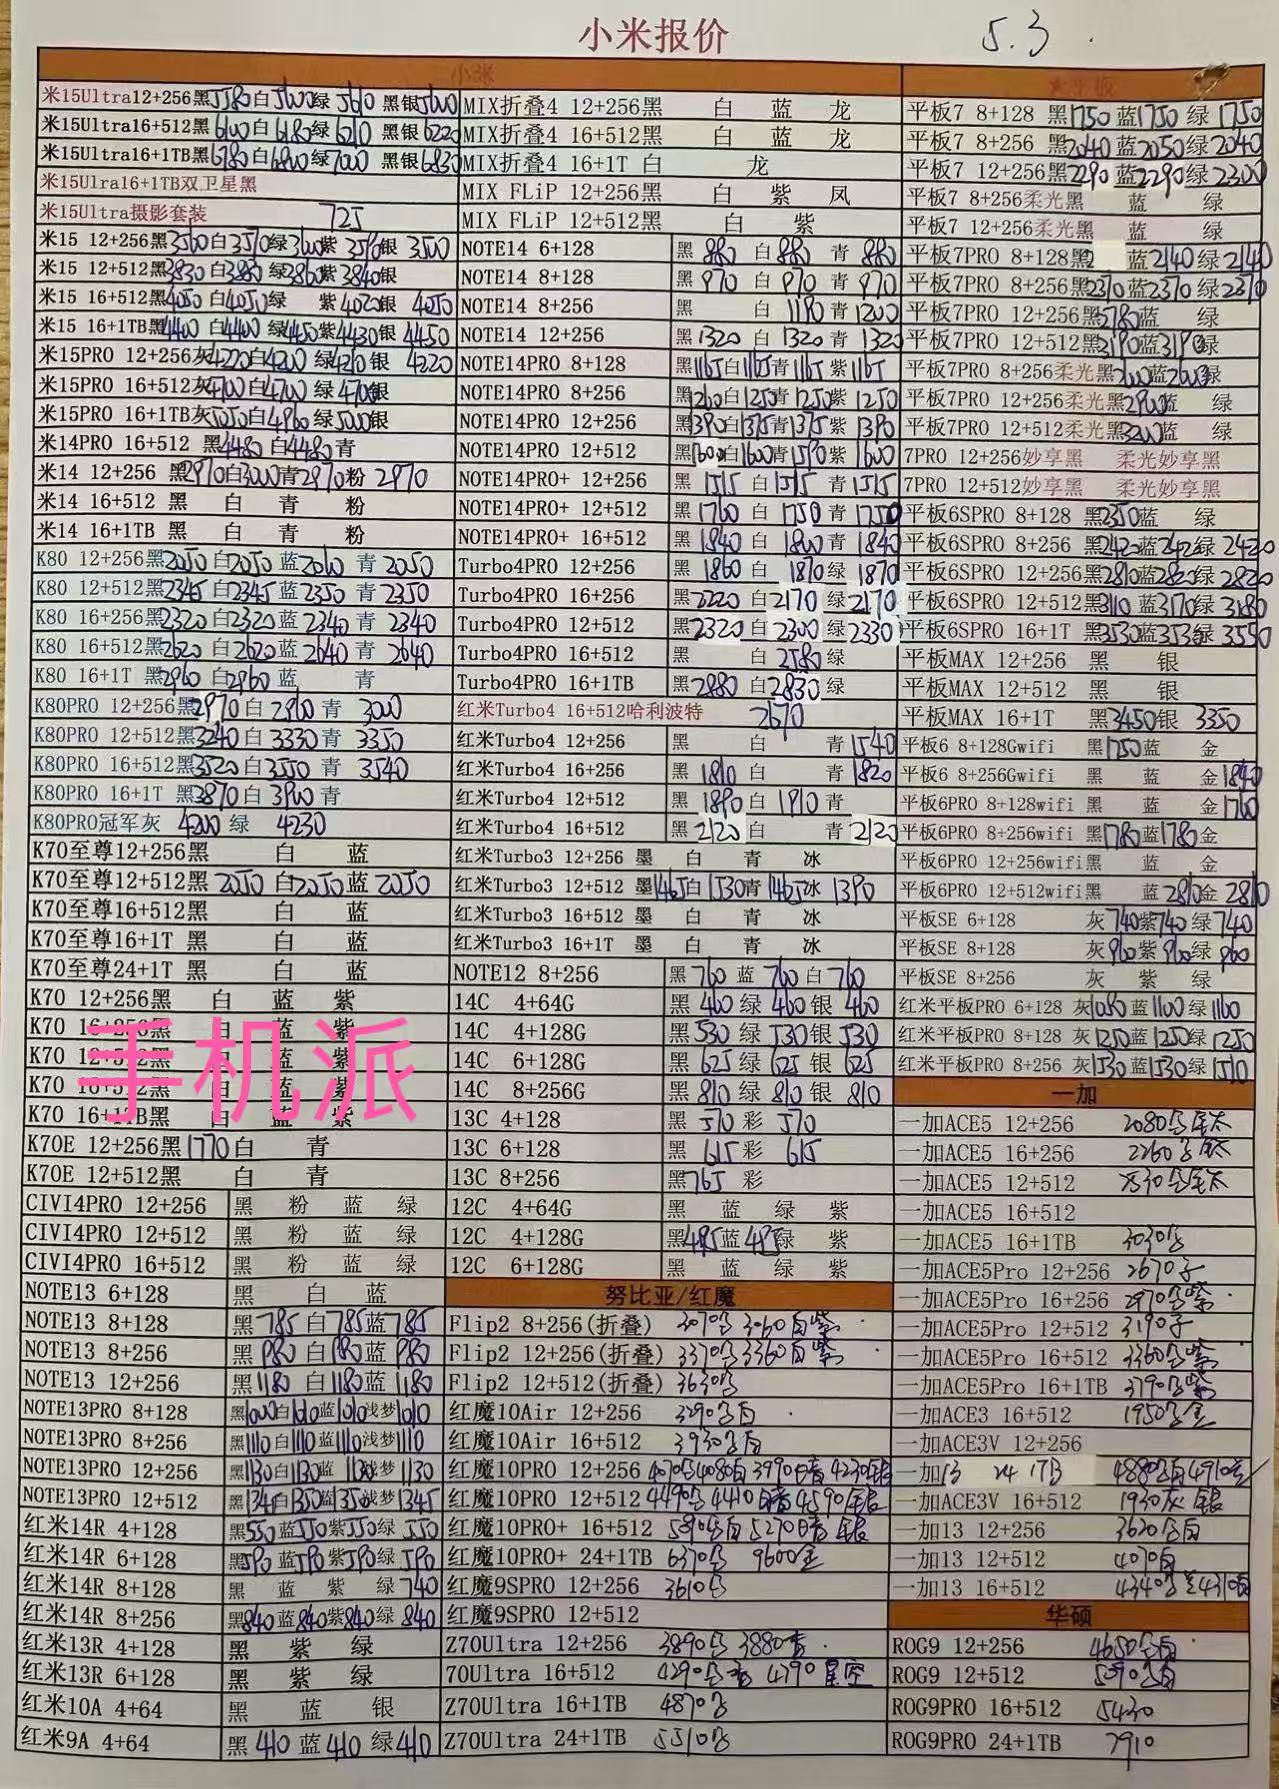 小米报价
5.3
小米
米15Ultra12+256黑5580白5600绿5610 黑银5600
米15Ultra16+512黑6100白6180绿6210 黑银6220
米15Ultra16+1TB黑6780白6800绿7000 黑银6830
米15Ulra16+1TB双卫星黑
米15Ultra摄影套装 725
米15 12+256黑3560白3570绿3600紫3590银 3500
米15 12+512黑3830白3880绿3860紫3840银
米15 16+512黑4050 白4050绿 紫4020银 4050
米15 16+1TB黑4400 白4400 绿4450紫4430银 4450
米15PRO 12+256灰4220白4200 绿4210银 4220
米15PRO 16+512灰4700白4700 绿4700银
米15PRO 16+1TB灰5050白4960绿5000银
米14PRO 16+512 黑4480 白4480青
米14 12+256 黑2970白3000青2970粉 2970
米14 16+512 黑 白 青 粉
米14 16+1TB 黑 白 青 粉
K80 12+256黑2050 白2050 蓝2060 青 2050
K80 12+512黑2345 白2345 蓝2350 青 2350
K80 16+256黑2320 白2320 蓝2340 青 2340
K80 16+512黑2620 白2620 蓝2640 青 2640
K80 16+1T 黑2960 白2960 蓝 青
K80PRO 12+256黑2970白 2960 青 3000
K80PRO 12+512黑3240白 3330 青 3350
K80PRO 16+512黑3520白 3550 青 3540
K80PRO 16+1T 黑3870白 3900 青
K80PRO冠军灰 4200 绿 4230
K70至尊12+256黑 白 蓝
K70至尊12+512黑 2050 白2050 蓝 2050
K70至尊16+512黑 白 蓝
K70至尊16+1T 黑 白 蓝
K70至尊24+1T 黑 白 蓝
K70 12+256黑 白 蓝 紫
K70 16+256黑 白 蓝 紫
K70 12+512黑 白 蓝 紫
K70 16+512黑 白 蓝 紫
K70 16+1TB黑 白 蓝 紫
手机派
K70E 12+256黑1770白 青
K70E 12+512黑 白 青
CIVI4PRO 12+256 黑 粉 蓝 绿
CIVI4PRO 12+512 黑 粉 蓝 绿
CIVI4PRO 16+512 黑 粉 蓝 绿
NOTE13 6+128 黑 白 蓝
NOTE13 8+128 黑785 白785蓝785
NOTE13 8+256 黑980 白980蓝980
NOTE13 12+256 黑1180 白1180蓝1180
NOTE13PRO 8+128 黑1000白1010蓝1010浅梦1010
NOTE13PRO 8+256 黑1110白1110蓝1110浅梦1110
NOTE13PRO 12+256 黑1130白1130蓝 1130浅梦1130
NOTE13PRO 12+512 黑1345白1350蓝1350浅梦1345
红米14R 4+128 黑550 蓝550紫550绿 550
红米14R 6+128 黑590 蓝590紫590绿590
红米14R 8+128 黑 蓝 紫 绿740
红米14R 8+256 黑840蓝840紫840绿 840
红米13R 4+128 黑 紫 绿
红米13R 6+128 黑 紫 绿
红米10A 4+64 黑 蓝 银
红米9A 4+64 黑 410 蓝410 绿410
MIX折叠4 12+256黑 白 蓝 龙
MIX折叠4 16+512黑 白 蓝 龙
MIX折叠4 16+1T 白 龙
MIX FLiP 12+256黑 白 紫 凤
MIX FLiP 12+512黑 白 紫
NOTE14 6+128 黑 880 白880 青 880
NOTE14 8+128 黑 970 白 970 青 970
NOTE14 8+256 黑 白 1190 青1200
NOTE14 12+256 黑1320 白 1320 青 1320
NOTE14PRO 8+128 黑1165白1165青1165紫1165
NOTE14PRO 8+256 黑1260白1250青1250紫1250
NOTE14PRO 12+256 黑1390白1375青1375紫 1390
NOTE14PRO 12+512 黑1600白1600青1590紫 1600
NOTE14PRO+ 12+256 黑 1515 白1515 青 1515
NOTE14PRO+ 12+512 黑 1760 白 1750 青1750
NOTE14PRO+ 16+512 黑 1840 白 1800 青1840
Turbo4PRO 12+256 黑 1860 白 1870绿 1870
Turbo4PRO 16+256 黑2220 白2170 绿2170
Turbo4PRO 12+512 黑2320 白2300 绿2330
Turbo4PRO 16+512 黑 白 2580绿
Turbo4PRO 16+1TB 黑2880 白2830绿
红米Turbo4 16+512哈利波特 2670
红米Turbo4 12+256 黑 白 青1540
红米Turbo4 16+256 黑 1810 白 青1820
红米Turbo4 12+512 黑 1890白 1910青
红米Turbo4 16+512 黑2120 白 青2120
红米Turbo3 12+256 墨 白 青 冰
红米Turbo3 12+512 墨1465白1530青1465冰 1390
红米Turbo3 16+512 墨 白 青 冰
红米Turbo3 16+1T 墨 白 青 冰
NOTE12 8+256 黑760 蓝 760 白760
14C 4+64G 黑 460 绿 460 银 460
14C 4+128G 黑 530 绿 530银530
14C 6+128G 黑 625 绿 625 银 625
14C 8+256G 黑 810 绿 810 银 810
13C 4+128 黑 570 彩 570
13C 6+128 黑 615 彩 615
13C 8+256 黑765 彩
12C 4+64G 黑 蓝 绿 紫
12C 4+128G 黑485蓝485绿 紫
12C 6+128G 黑 蓝 绿 紫
努比亚/红魔
Flip2 8+256(折叠) 3070 3060白紫
Flip2 12+256(折叠) 3370 3360白紫
Flip2 12+512(折叠) 3630
红魔10Air 12+256 3290 白
红魔10Air 16+512 3930 白
红魔10PRO 12+256 4070 4080白3990暗4230银
红魔10PRO 12+512 4490 4410暗4590银
红魔10PRO+ 16+512 5270暗 银
红魔10PRO+ 24+1TB 6370 9600金
红魔9SPRO 12+256 3610
红魔9SPRO 12+512
Z70Ultra 12+256 3890 3880青
70Ultra 16+512 4290 4390星空
Z70Ultra 16+1TB 4870
Z70Ultra 24+1TB 5510
★平板
平板7 8+128 黑1750蓝1750 绿 1750
平板7 8+256 黑2040蓝2050绿2040
平板7 12+256黑2290蓝2290绿2300
平板7 8+256柔光黑 蓝 绿
平板7 12+256柔光黑 蓝 绿
平板7PRO 8+128黑 蓝2140绿2140
平板7PRO 8+256黑2370蓝2370绿2370
平板7PRO 12+256黑2780蓝 绿
平板7PRO 12+512黑3190蓝3190绿
平板7PRO 8+256柔光黑2600蓝2600绿
平板7PRO 12+256柔光黑2900蓝 绿
平板7PRO 12+512柔光黑3200蓝 绿
7PRO 12+256妙享黑 柔光妙享黑
7PRO 12+512妙享黑 柔光妙享黑
平板6SPRO 8+128 黑2350蓝 绿
平板6SPRO 8+256 黑2420蓝2420绿 2420
平板6SPRO 12+256黑2810蓝2820绿 2820
平板6SPRO 12+512黑3110 蓝3170绿 3180
平板6SPRO 16+1T 黑3530蓝3535绿 3550
平板MAX 12+256 黑 银
平板MAX 12+512 黑 银
平板MAX 16+1T 黑3450银 3350
平板6 8+128Gwifi 黑1750蓝 金
平板6 8+256Gwifi 黑 蓝 金1840
平板6PRO 8+128wifi 黑 蓝 金1760
平板6PRO 8+256wifi 黑1780蓝1780金
平板6PRO 12+256wifi黑 蓝 金
平板6PRO 12+512wifi黑 蓝2810金 2810
平板SE 6+128 灰740紫740 绿 740
平板SE 8+128 灰960紫960绿 960
平板SE 8+256 灰 紫 绿
红米平板PRO 6+128 灰1080蓝1100绿1100
红米平板PRO 8+128 灰1250蓝1250绿1250
红米平板PRO 8+256 灰1530蓝1530绿1510
一加
一加ACE5 12+256 2080 钛
一加ACE5 16+256 2260 钛
一加ACE5 12+512 2530 钛
一加ACE5 16+512
一加ACE5 16+1TB 3030
一加ACE5Pro 12+256 2670
一加ACE5Pro 16+256 2970 紫
一加ACE5Pro 12+512 3190
一加ACE5Pro 16+512 3360 紫
一加ACE5Pro 16+1TB 3790 紫
一加ACE3 16+512 1950 金
一加ACE3V 12+256
一加13 24 1TB 4880 白4910
一加ACE3V 16+512 1930灰 银
一加13 12+256 3620 白
一加13 12+512 4070白
一加13 16+512 4340 4310白
华硕
ROG9 12+256 4650 白
ROG9 12+512 5090 白
ROG9PRO 16+512 5430
ROG9PRO 24+1TB 7910